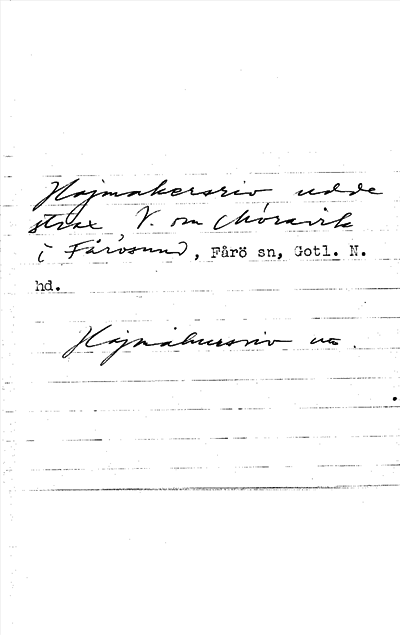 Hajmakersriv udde
strax V. om Moravik
i Fårösund, Fårö sn, Gotl. N.
hd.
Hajmakersriv